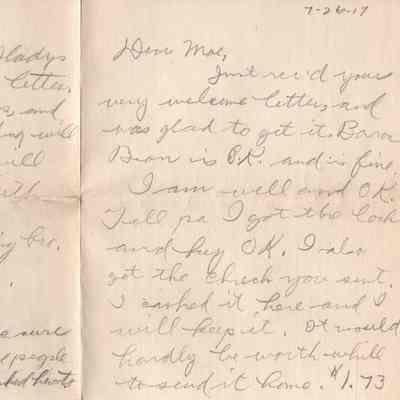 7-26-17
Gladys
letter,
and
will
will
Dear Mae,
Just rec'd your
very welcome letter, and
was glad to get it. Baron
Bean is O.K. and is fine.
I am well and O.K.
Tell pa I got the lock
and key OK. I also
got the check you sent.
I cashed it here and I
will keep it. It would
hardly be worth-while
to send it home. $1.73
bro.
sure
people
hearts